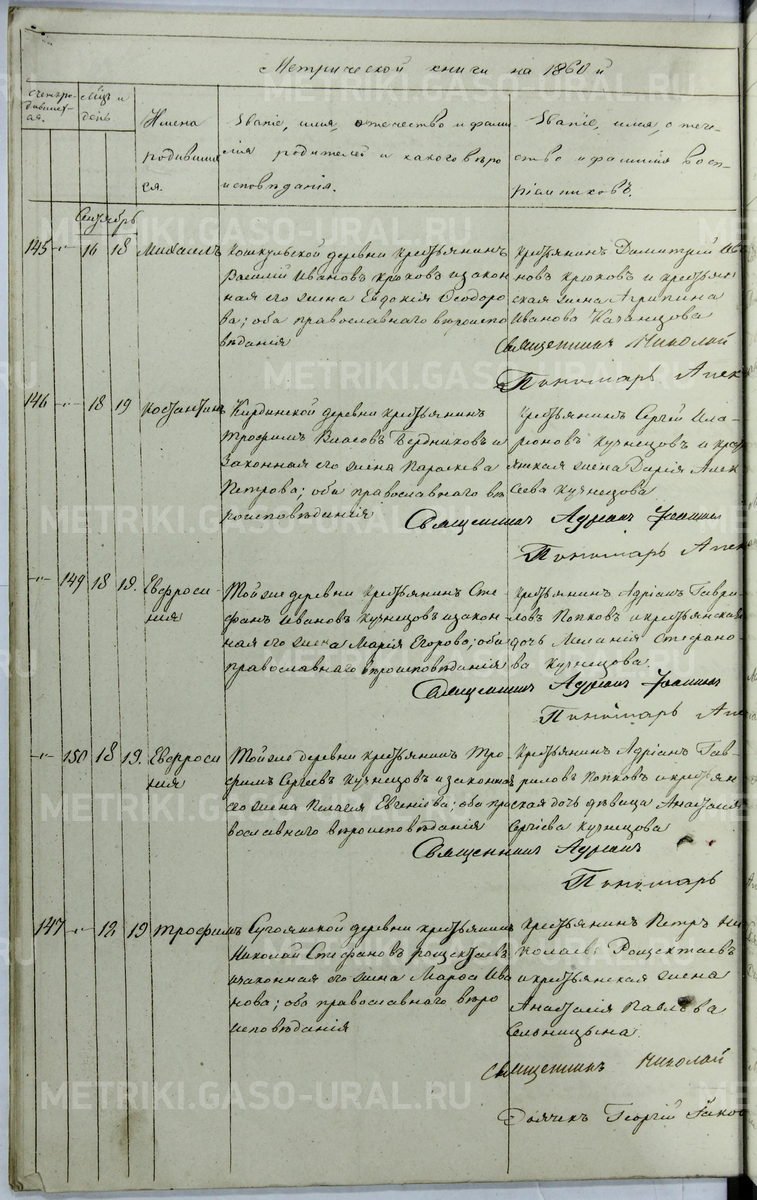 Метрической книги на 1860 й
Счетъ ро-
дившихъ-
ся.
Мѣцъ и
день
Имена
родивших
ся.
Званіе, имя, отечество и фами
лія родителей и какого вѣро
исповѣданія.
Званіе, имя, отече-
ство и фамилія восп-
ріемниковъ.
Сентябрь
145 16 18 Михаилъ
Кошкульской деревни крестьянинъ
Василій Ивановъ Крюковъ и закон
ная его жена Евдокія Ѳеодоро
ва; оба православнаго вѣроиспо
вѣданія
Крестьянинъ Димитрій Ива
новъ Крюковъ и крестьян
ская жена Агрипина
Иванова Казанцова
Священникъ Николай
Пономарь Алек
146 18 19 Костантинъ
Кирдинской деревни крестьянинъ
Трофимъ Власовъ Бердниковъ и
законная его жена Параскева
Петрова; оба православнаго вѣ
роисповѣданія
Крестьянинъ Сергій Ила
роновъ Кузнецовъ и крес
янская жена Дарія Алек
сѣева Кузнецова
Священникъ Адріанъ
Пономарь Алек
149 18 19. Евфроси-
нія
Той же деревни крестьянинъ Сте
фанъ Ивановъ Кузнецовъ и закон
ная его жена Марія Егорова; оба
православнаго вѣроисповѣданія
Крестьянинъ Адріанъ Гаври
ловъ Попковъ и крестьянская
дочь Меланія Стефано-
ва Кузнецова.
Священникъ Адріанъ
Пономарь Алек
150 18 19. Евфроси
нія
Той же деревни крестьянинъ Тро
фимъ Сергіевъ Кузнецовъ и законная
его жена Пелагія Евгеніева; оба пра
вославнаго вѣроисповѣданія
Крестьянинъ Адріанъ Гав-
риловъ Попковъ и крестьян
ская дочь дѣвица Анастасія
Сергіева Кузнецова
Священникъ Адріанъ
Пономарь
147 12 19 Трофимъ
деревни крестьянинъ
Николай Стефановъ Рощектаевъ
и законная его жена Марѳа Ива
нова; оба православнаго вѣро
исповѣданія
Крестьянинъ Петръ Ни
колаевъ Рощектаевъ
и крестьянская жена
Анастасія Павлова
Сельницына.
Священникъ Николай
Дьячекъ Георгій
METRIKI.GASO-URAL.RU